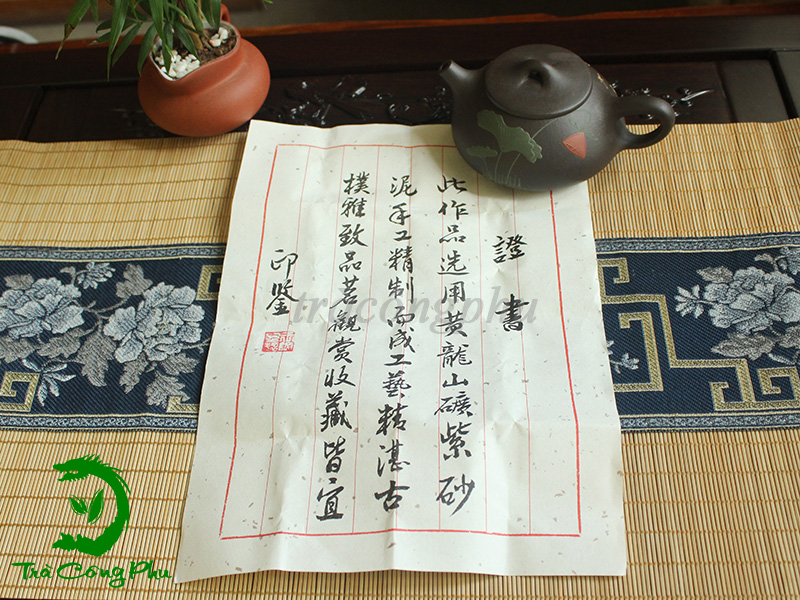 證書
此作品选用黄龍山礦紫砂
泥手工精制而成工藝精湛古
樸雅致品茗觀赏收藏皆宜
印鉴
tracongphu
Trà Công Phu